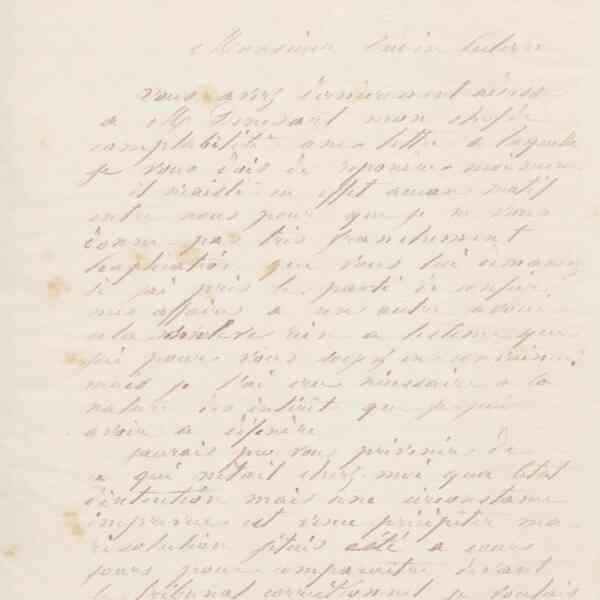 Monsieur
vous avez dernièrement adressé
a Mr Denesant mon chef de
comptabilité une lettre a laquelle
je vous dois de reponse moi meme
il n'existe en effet aucun motif
entre nous pour que je ne vous
donne pas très franchement
l'explication que vous lui demandez
Si j'ai pris le parti de confier
mes affaires a un autre avoué
cela n'enleve rien a l'estime que
j'ai pour vous soyez en convaincu
mais je l'ai cru nécessaire a la
nature des intérêt que je puis
avoir a défendre
j'aurais pu vous prévenir de
ce qui n'était chez moi qua l'état
d'intention mais une circonstance
imprévue est venue précipiter ma
résolution j'étais cité a cours
jours pour comparaître devant
le tribunal correctionnel je voulais